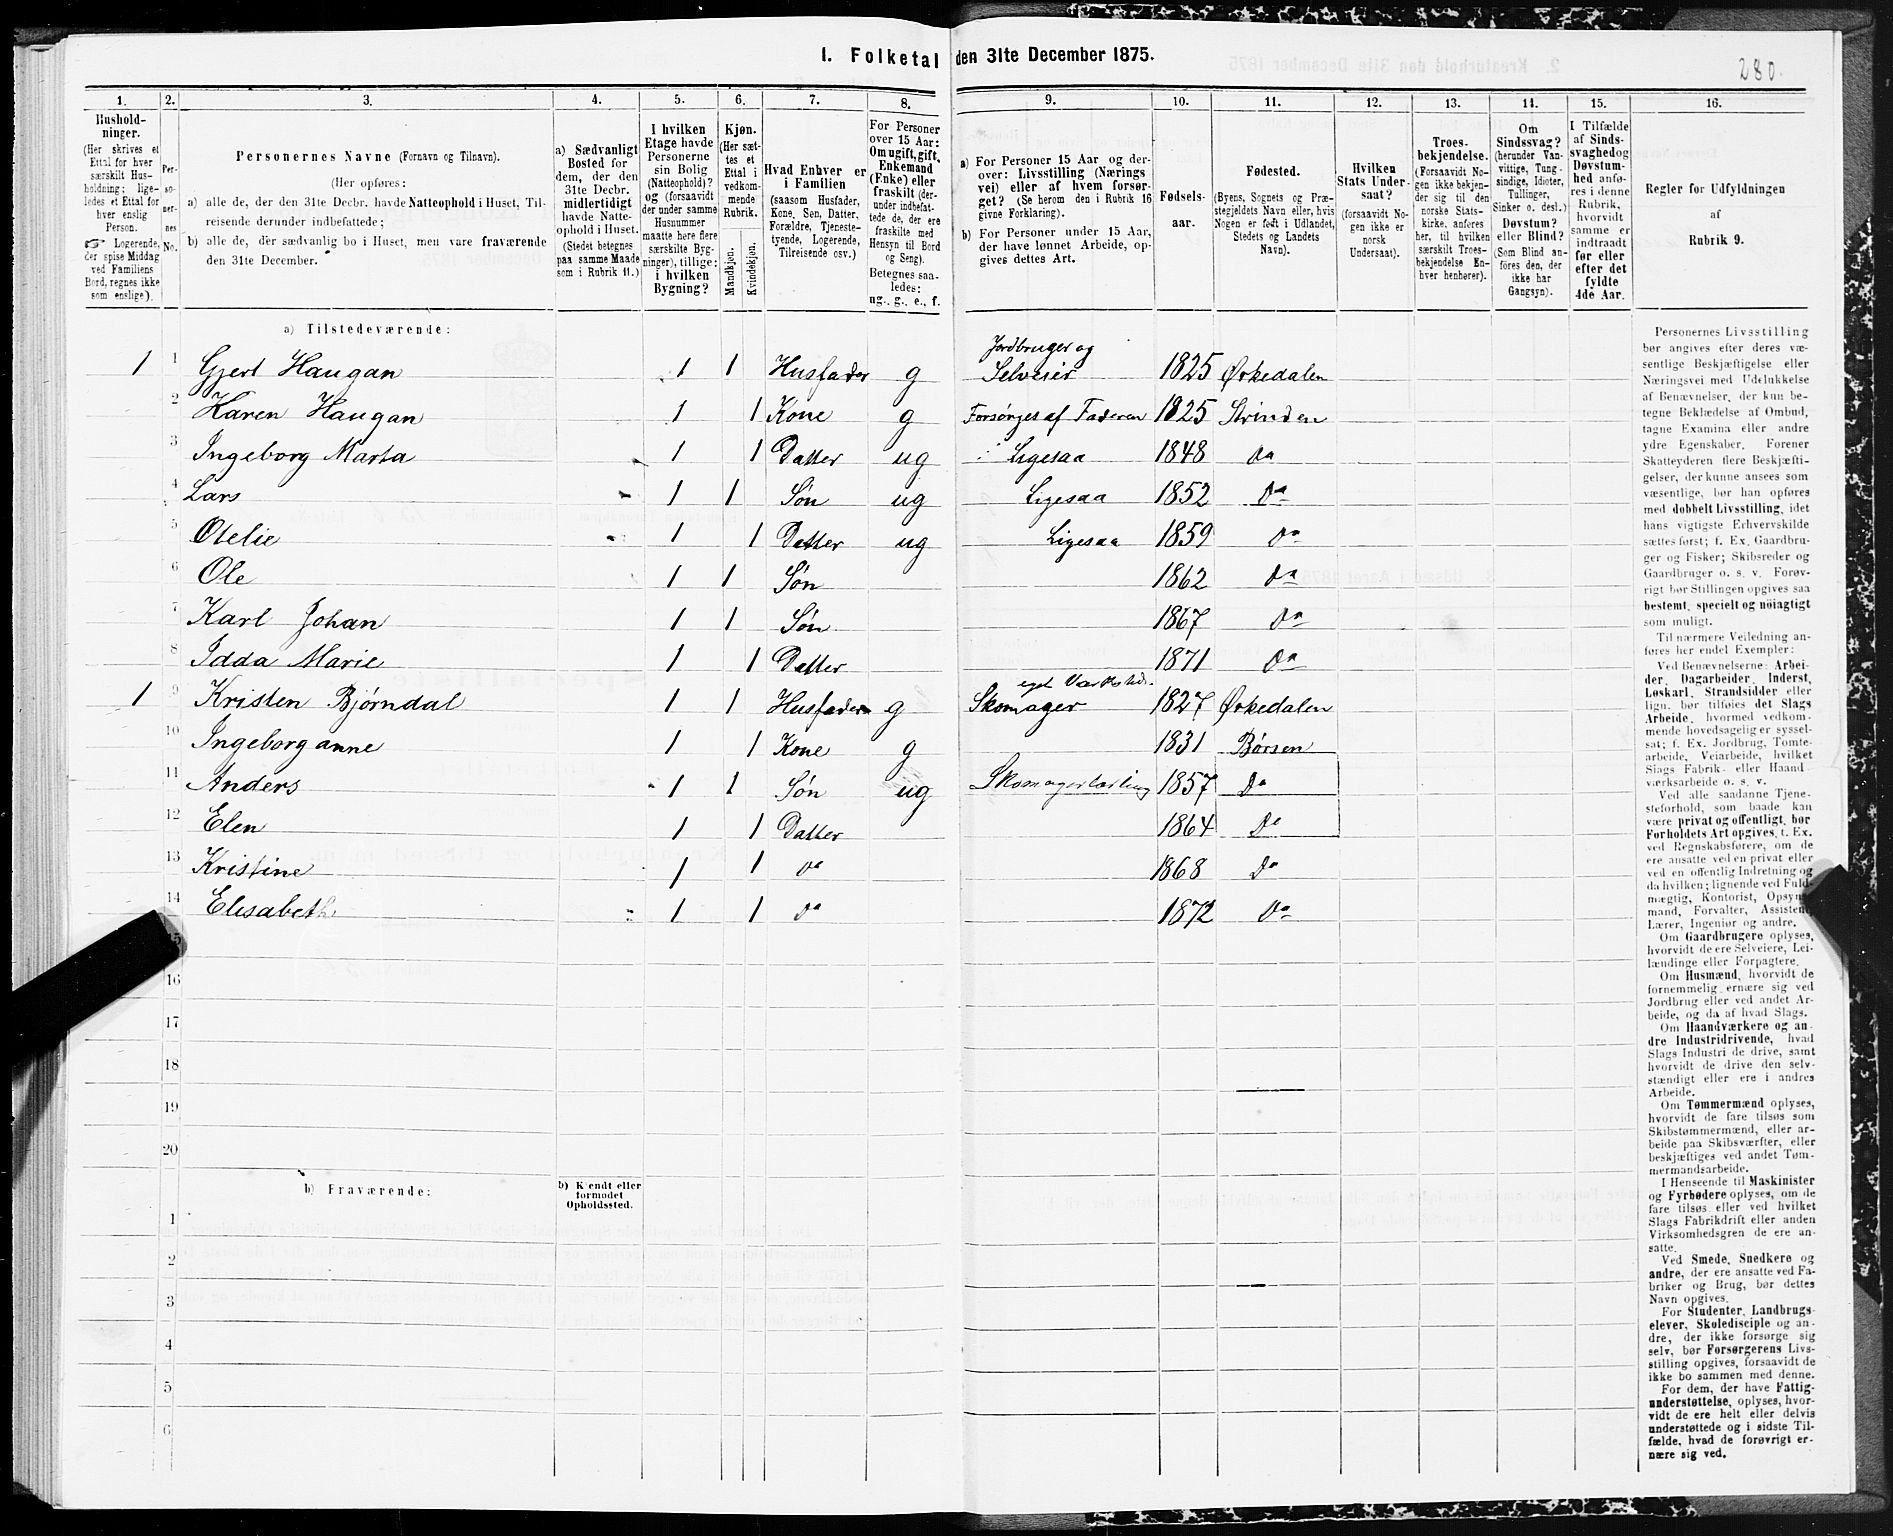 1. Folketal den 31te December 1875.
280.
1. 2. 3. 4. 5. 6. 7. 8. 9. 10. 11. 12. 13. 14. 15. 16.
Husholdninger.
(Her skrives et
Ettal for hver
særskilt Husholdning;
ligeledes et Ettal for
hver enslig
Person.
☞ Logerende,
der spise Middag
ved Familiens
Bord, regnes ikke
som enslige).
Personernes No.
Personernes Navne (Fornavn og Tilnavn).
(Her opføres:
a) alle de, der den 31te Decbr. havde Natteophold i Huset, Tilreisende derunder indbefattede;
b) alle de, der sædvanlig bo i Huset, men vare fraværende
den 31te December.
a) Sædvanligt
Bosted for
dem, der den
31te Decbr.
midlertidigt
havde Natteophold i Huset.
(Stedet betegnes
paa samme Maade
som i Rubrik 11.)
I hvilken
Etage havde
Personerne
sin Bolig
(Natteophold)?
og (forsaavidt
der under samme
Husnummer
maatte høre flere
særskilte Bygninger), tillige:
i hvilken
Bygning?
Kjøn.
(Her sættes et
Ettal i
vedkommende
Rubrik.
Mandkjøn.
Kvindekjøn.
Hvad Enhver er
i Familien
(saasom Husfader,
Kone, Søn, Datter,
Forældre, Tjenestetyende, Logerende,
Tilreisende osv.)
For Personer
over 15 Aar:
Om ugift, gift,
Enkemand
(Enke) eller
fraskilt (derunder indbefattede de, der ere
fraskilte med
Hensyn til Bord
og Seng).
Betegnes saaledes:
ug., g., e., f.
a) For Personer 15 Aar og derover: Livsstilling (Næringsvei) eller af hvem forsørget? (Se herom den i Rubrik 16
givne Forklaring).
b) For Personer under 15 Aar,
der have lønnet Arbeide, opgives dettes Art.
Fødselsaar.
Fødested.
(Byens, Sognets og Præstegjeldets Navn eller, hvis
Nogen er født i Udlandet,
Stedets og Landets
Navn).
Hvilken
Stats Undersaat?
(forsaavidt Nogen ikke er
norsk
Undersaat).
Troesbekjendelse.
(Forsaavidt Nogen ikke bekjender sig til den
norske Statskirke, anføres
her, til hvilken
særskilt Troesbekjendelse Enhver henhører).
Om
Sindssvag?
(herunder Vanvittige, Tungsindige, Idioter,
Tullinger,
Sinker o. desl.)
Døvstum?
eller Blind?
(Som Blind anføres den, der
ikke har
Gangsyn).
I Tilfælde
af Sindssvaghed og
Døvstumhed anføres i denne
Rubrik,
hvorvidt
samme er
indtraadt
før eller
efter det
fyldte
4de Aar.
Regler for Udfyldningen
af
Rubrik 9.
a) Tilstedeværende:
1 1 Gjert Haugan 1 1 Husfader g Jordbruger og Selveier 1825 Ørkedalen
2 Karen Haugan 1 1 Kone g Forsørges af Faderen 1825 Strinden
3 Ingeborg Marta 1 1 Datter ug Ligesaa 1848 Do
4 Lars 1 1 Søn ug Ligesaa 1852 Do
5 Otelie 1 1 Datter ug Ligesaa 1859 Do
6 Ole 1 1 Søn 1862 Do
7 Karl Johan 1 1 Søn 1867 Do
8 Idda Marie 1 1 Datter 1871 Do
1 9 Kristen Bjørndal 1 1 Husfader g Skomager eget Værksted. 1827 Ørkedalen
10 Ingeborg anne 1 1 Kone g 1831 Børsen
11 Anders 1 1 Søn ug Skomagerlærling 1857 Do
12 Elen 1 1 Datter 1864 Do
13 Kristine 1 1 Do 1868 Do
14 Elisabeth 1 1 Do 1872 Do
15
16
17
18
19
20
b) Fraværende:
b) Kjendt eller
formodet
Opholdssted.
1
2
3
4
5
6
Personernes Livsstilling
bør angives efter deres væsentlige Beskjæftigelse eller
Næringsvei med Udelukkelse
af Benævnelser, der kun betegne Beklædelse af Ombud,
tagne Examina eller andre
ydre Egenskaber. Forener
Skatteyderen flere Beskjæftigelser, der kunne ansees som
væsentlige, bør han opføres
med dobbelt Livsstilling, idet
hans vigtigste Erhvervskilde
sættes først; f. Ex. Gaardbruger og Fisker; Skibsreder og
Gaardbruger o. s. v. Forøvrigt bør Stillingen opgives saa
bestemt, specielt og nöiagtigt
som muligt.
Til nærmere Veiledning anføres her endel Exempler:
Ved Benævnelserne: Arbeider, Dagarbeider, Inderst,
Løskarl, Strandsidder eller
lign. bør tilføies det Slags
Arbeide, hvormed vedkommende hovedsagelig er sysselsat; f. Ex. Jordbrug, Tomtearbeide, Veiarbeide, hvilket
Slags Fabrik- eller Haandværksarbeide o. s. v.
Ved alle saadanne Tjenesteforhold, som baade kan
være privat og offentligt, bør
Forholdets Art opgives, t. Ex.
ved Regnskabsførere, om de
ere ansatte ved en privat eller
ved en offentlig Indretning og
da hvilken; lignende ved Fuldmægtig, Kontorist, Opsynsmand, Forvalter, Assistent,
Lærer, Ingeniør og andre.
Om Gaardbrugere oplyses,
hvorvidt de ere Selveiere, Leilændinge eller Forpagtere.
Om Husmænd, hvorvidt de
fornemmelig ernære sig ved
Jordbrug eller ved andet Arbeide, og da af hvad Slags.
Om Haandværkere og andre Industridrivende, hvad
Slags Industri de drive, samt
hvorvidt de drive den selvstændigt eller ere i andres
Arbeide.
Om Tømmermænd oplyses,
hvorvidt de fare tilsøs som
Skibstømmermænd, eller arbeide paa Skibsværfter, eller
beskjæftiges ved andet Tømmermandsarbeide.
I Henseende til Maskinister
og Fyrbødere oplyses, om de
fare tilsøs eller ved hvilket
Slags Fabrikdrift eller anden
Virksomhedsgren de ere ansatte.
Ved Smede, Snedkere og
andre, der ere ansatte ved Fabriker og Brug, bør dettes
Navn opgives.
For Studenter, Landbrugselever, Skoledisciple og andre, der ikke forsørge sig
selv, bør Forsørgerens Livsstilling opgives, forsaavidt de
ikke bo sammen med denne.
For dem, der have Fattigunderstøttelse, oplyses, hvorvidt de ere helt eller delvis
understøttede og i sidste Tilfælde, hvad de forøvrigt ernære sig ved.